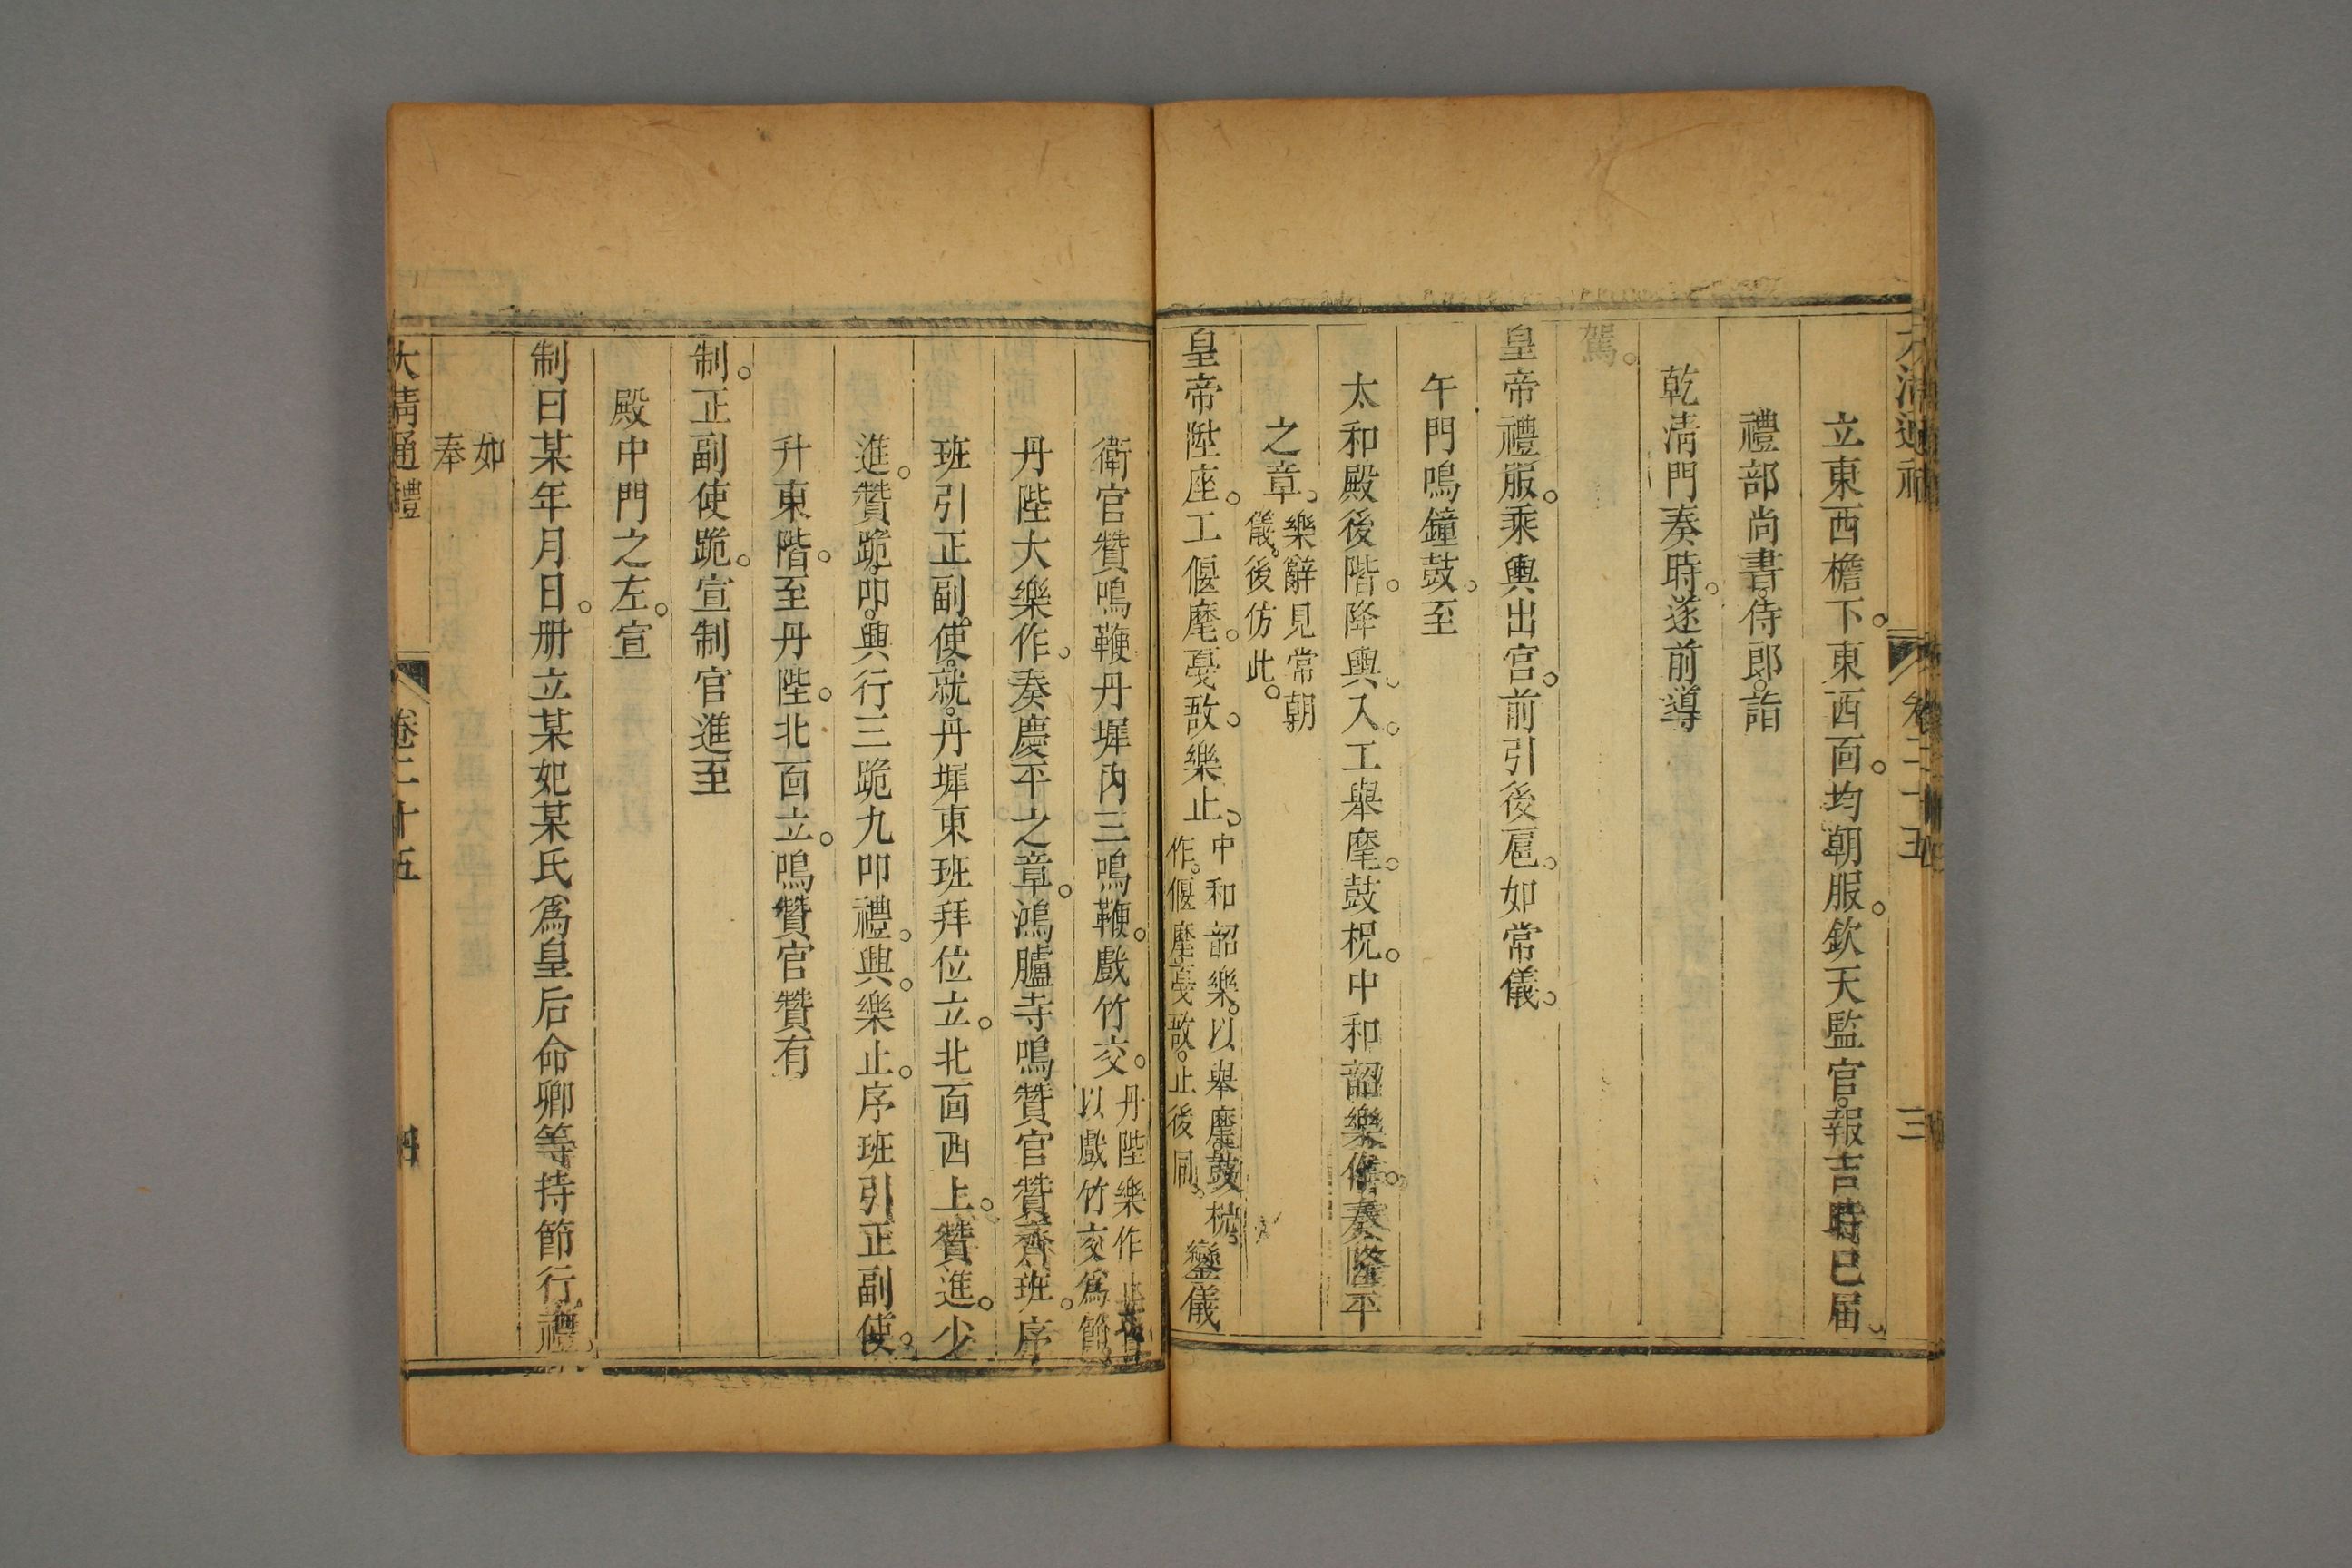 大清通禮 卷二十五 三
立東西檐下。東西面。均朝服。欽天監官。報吉時已届。
禮部尚書。侍郎。詣
乾淸門奏時。遂前導
駕。
皇帝禮服。乘輿出宫。前引後扈。如常儀。
午門鳴鐘鼓。至
太和殿後階。降輿。入。工舉麾。鼓柷。中和韶樂作。奏隆平
之章。樂辭見常朝
儀。後仿此。
皇帝陞座。工偃麾。戞敔。樂止。中和韶樂。以舉麾。鼓柷。
作。偃麾。戞敔。止。後同。鑾儀
衛官贊鳴鞭。丹墀內三鳴鞭。戲竹交。丹陛樂作止皆
以戲竹交爲節。
丹陛大樂作。奏慶平之章。鴻臚寺鳴贊官贊齊班。序
班引正副使。就丹墀東班拜位立。北面西上。贊進。少
進。贊跪。叩。興。行三跪九叩禮。興。樂止。序班引正副使。
升東階。至丹陛。北面立。鳴贊官贊有
制。正副使跪。宣制官進至
殿中門之左。宣
制曰某年月日。册立某妃某氏爲皇后命卿等持節行禮。
如
奉
大淸通禮 卷二十五 四